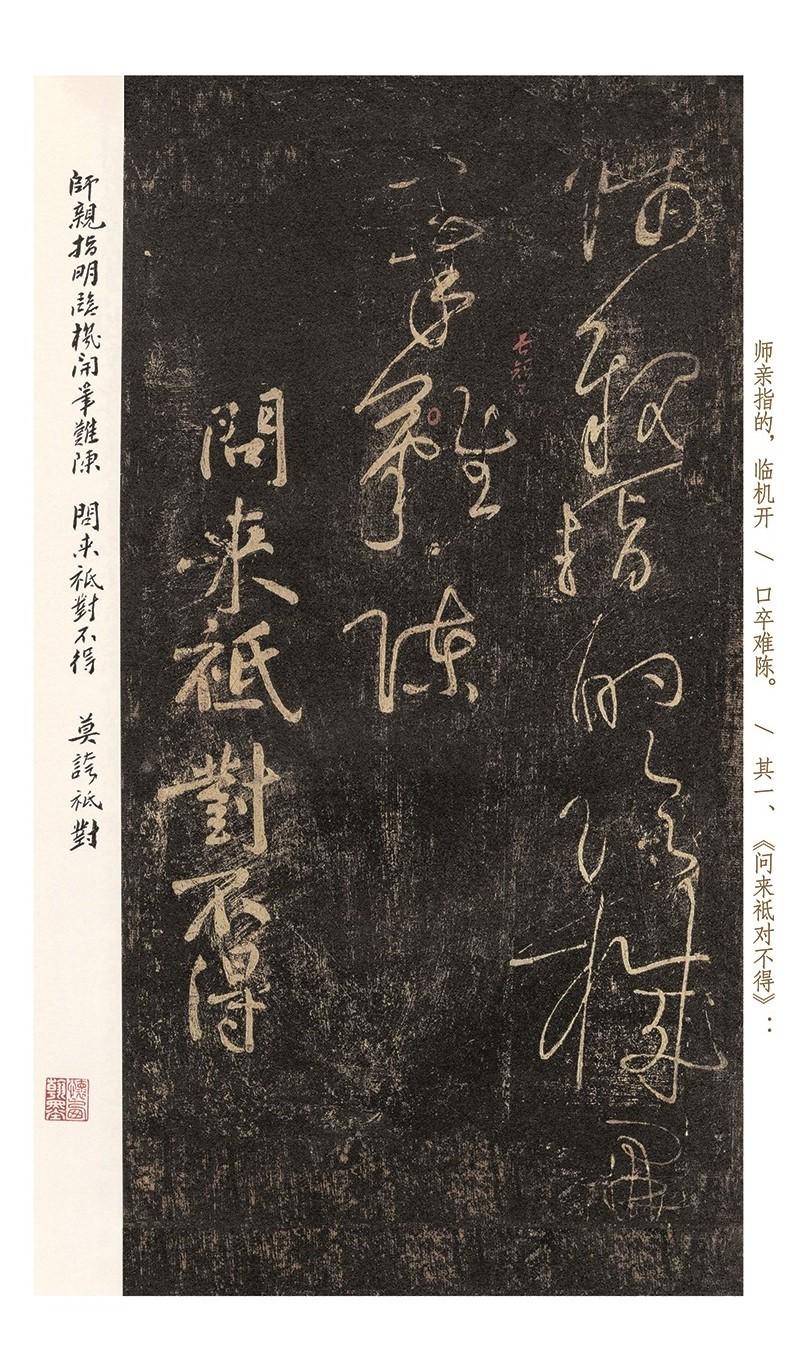 师亲指的，临机开 / 口卒难陈。 / 其一、《问来祗对不得》：
師親指的臨機開
口卒難陳
問来祗對不得
師親指明臨機開筆難陳 問来祗對不得 莫誇祗對